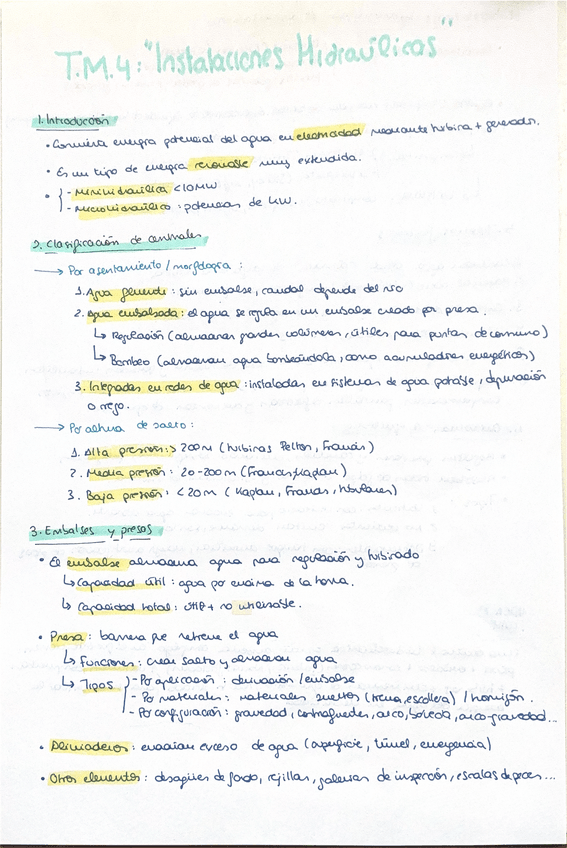 T.M.4: "Instalaciones Hidraúlicas"
1. Introducción
• Convierte energía potencial del agua en electricidad mediante turbina + generador.
• Es un tipo de energía renovable muy extendida.
• - Minihidraúlica <10MW
- Microhidraúlica: potencias de kW.
2. Clasificación de centrales
→ Por asentamiento / morfología:
1. Agua fluyente: sin embalse, caudal depende del río
2. Agua embalsada: el agua se regula en un embalse creado por presa.
↳ Regulación (almacenan grandes volúmenes, útiles para puntas de consumo)
↳ Bombeo (almacenan agua bombeándola, como acumuladores energéticos)
3. Integradas en redes de agua: instaladas en sistemas de agua potable, depuración
o riego.
→ Por altura de salto:
1. Alta presión: > 200m (turbinas Pelton, Francis)
2. Media presión: 20-200m (Francis, Kaplan)
3. Baja presión: <20m (Kaplan, Francis, tubulares)
3. Embalses y presas
• El embalse almacena agua para regulación y turbinado
↳ Capacidad útil: agua por encima de la toma.
↳ Capacidad total: útil + no utilizable.
• Presa: barrera que retiene el agua
↳ Funciones: crear salto y almacenar agua
↳ Tipos - Por aplicación: derivación / embalse
- Por materiales: materiales sueltos (tierra, escollera) / hormigón.
- Por configuración: gravedad, contrafuertes, arco, bóveda, arco-gravedad...
• Aliviaderos: evacúan exceso de agua (superficie, túnel, emergencia)
• Otros elementos: desagües de fondo, rejillas, galerías de inspección, escalas de peces...